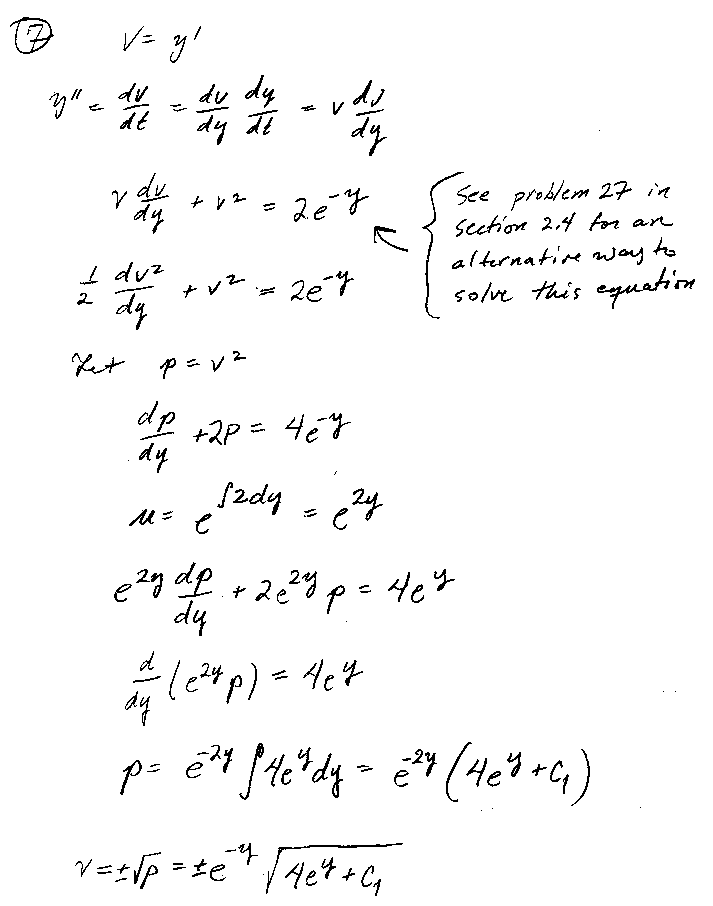 ⑦ v = y'
y'' = dv/dt = dv/dy dy/dt = v dv/dy
v dv/dy + v² = 2e^{-y}
See problem 27 in
section 2.4 for an
alternative way to
solve this equation
1/2 dv²/dy + v² = 2e^{-y}
Let p = v²
dp/dy + 2p = 4e^{-y}
μ = e^{∫2dy} = e^{2y}
e^{2y} dp/dy + 2e^{2y} p = 4e^{y}
d/dy (e^{2y} p) = 4e^{y}
p = e^{-2y} ∫4e^{y}dy = e^{-2y} (4e^{y} + C₁)
v = ±√p = ±e^{-y} √(4e^{y} + C₁)